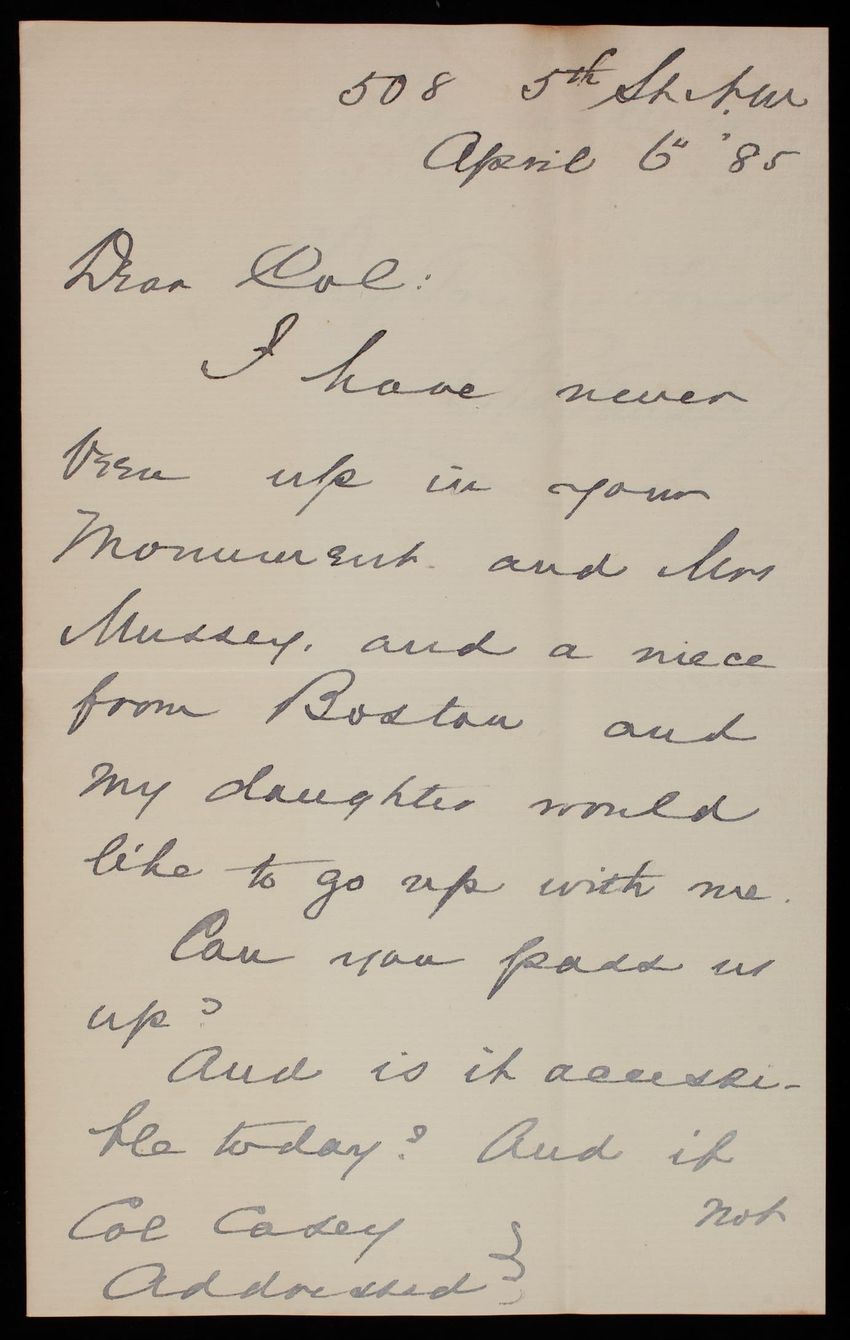 508 5th St. N.W.
April 6" '85
Dear Col:
I have never
been up in your
Monument. and Mrs
Mussey. and a niece
from Boston and
my daughter would
like to go up with me.
Can you pass us
up?
And is it accessi-
ble today? And if
not
Col Casey
Addressed }